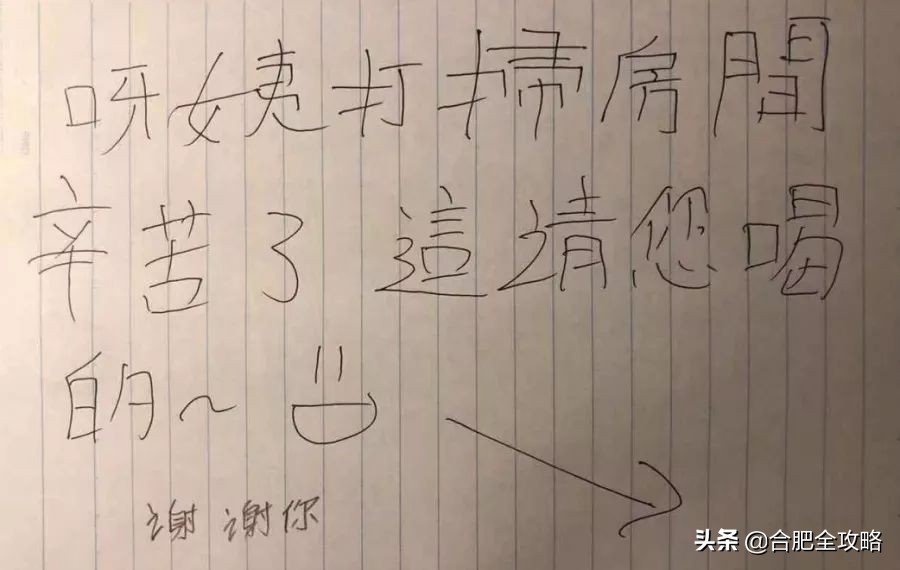 呀姨打掃房間
辛苦了 這请您喝
的~
谢谢你
头条 @合肥全攻略